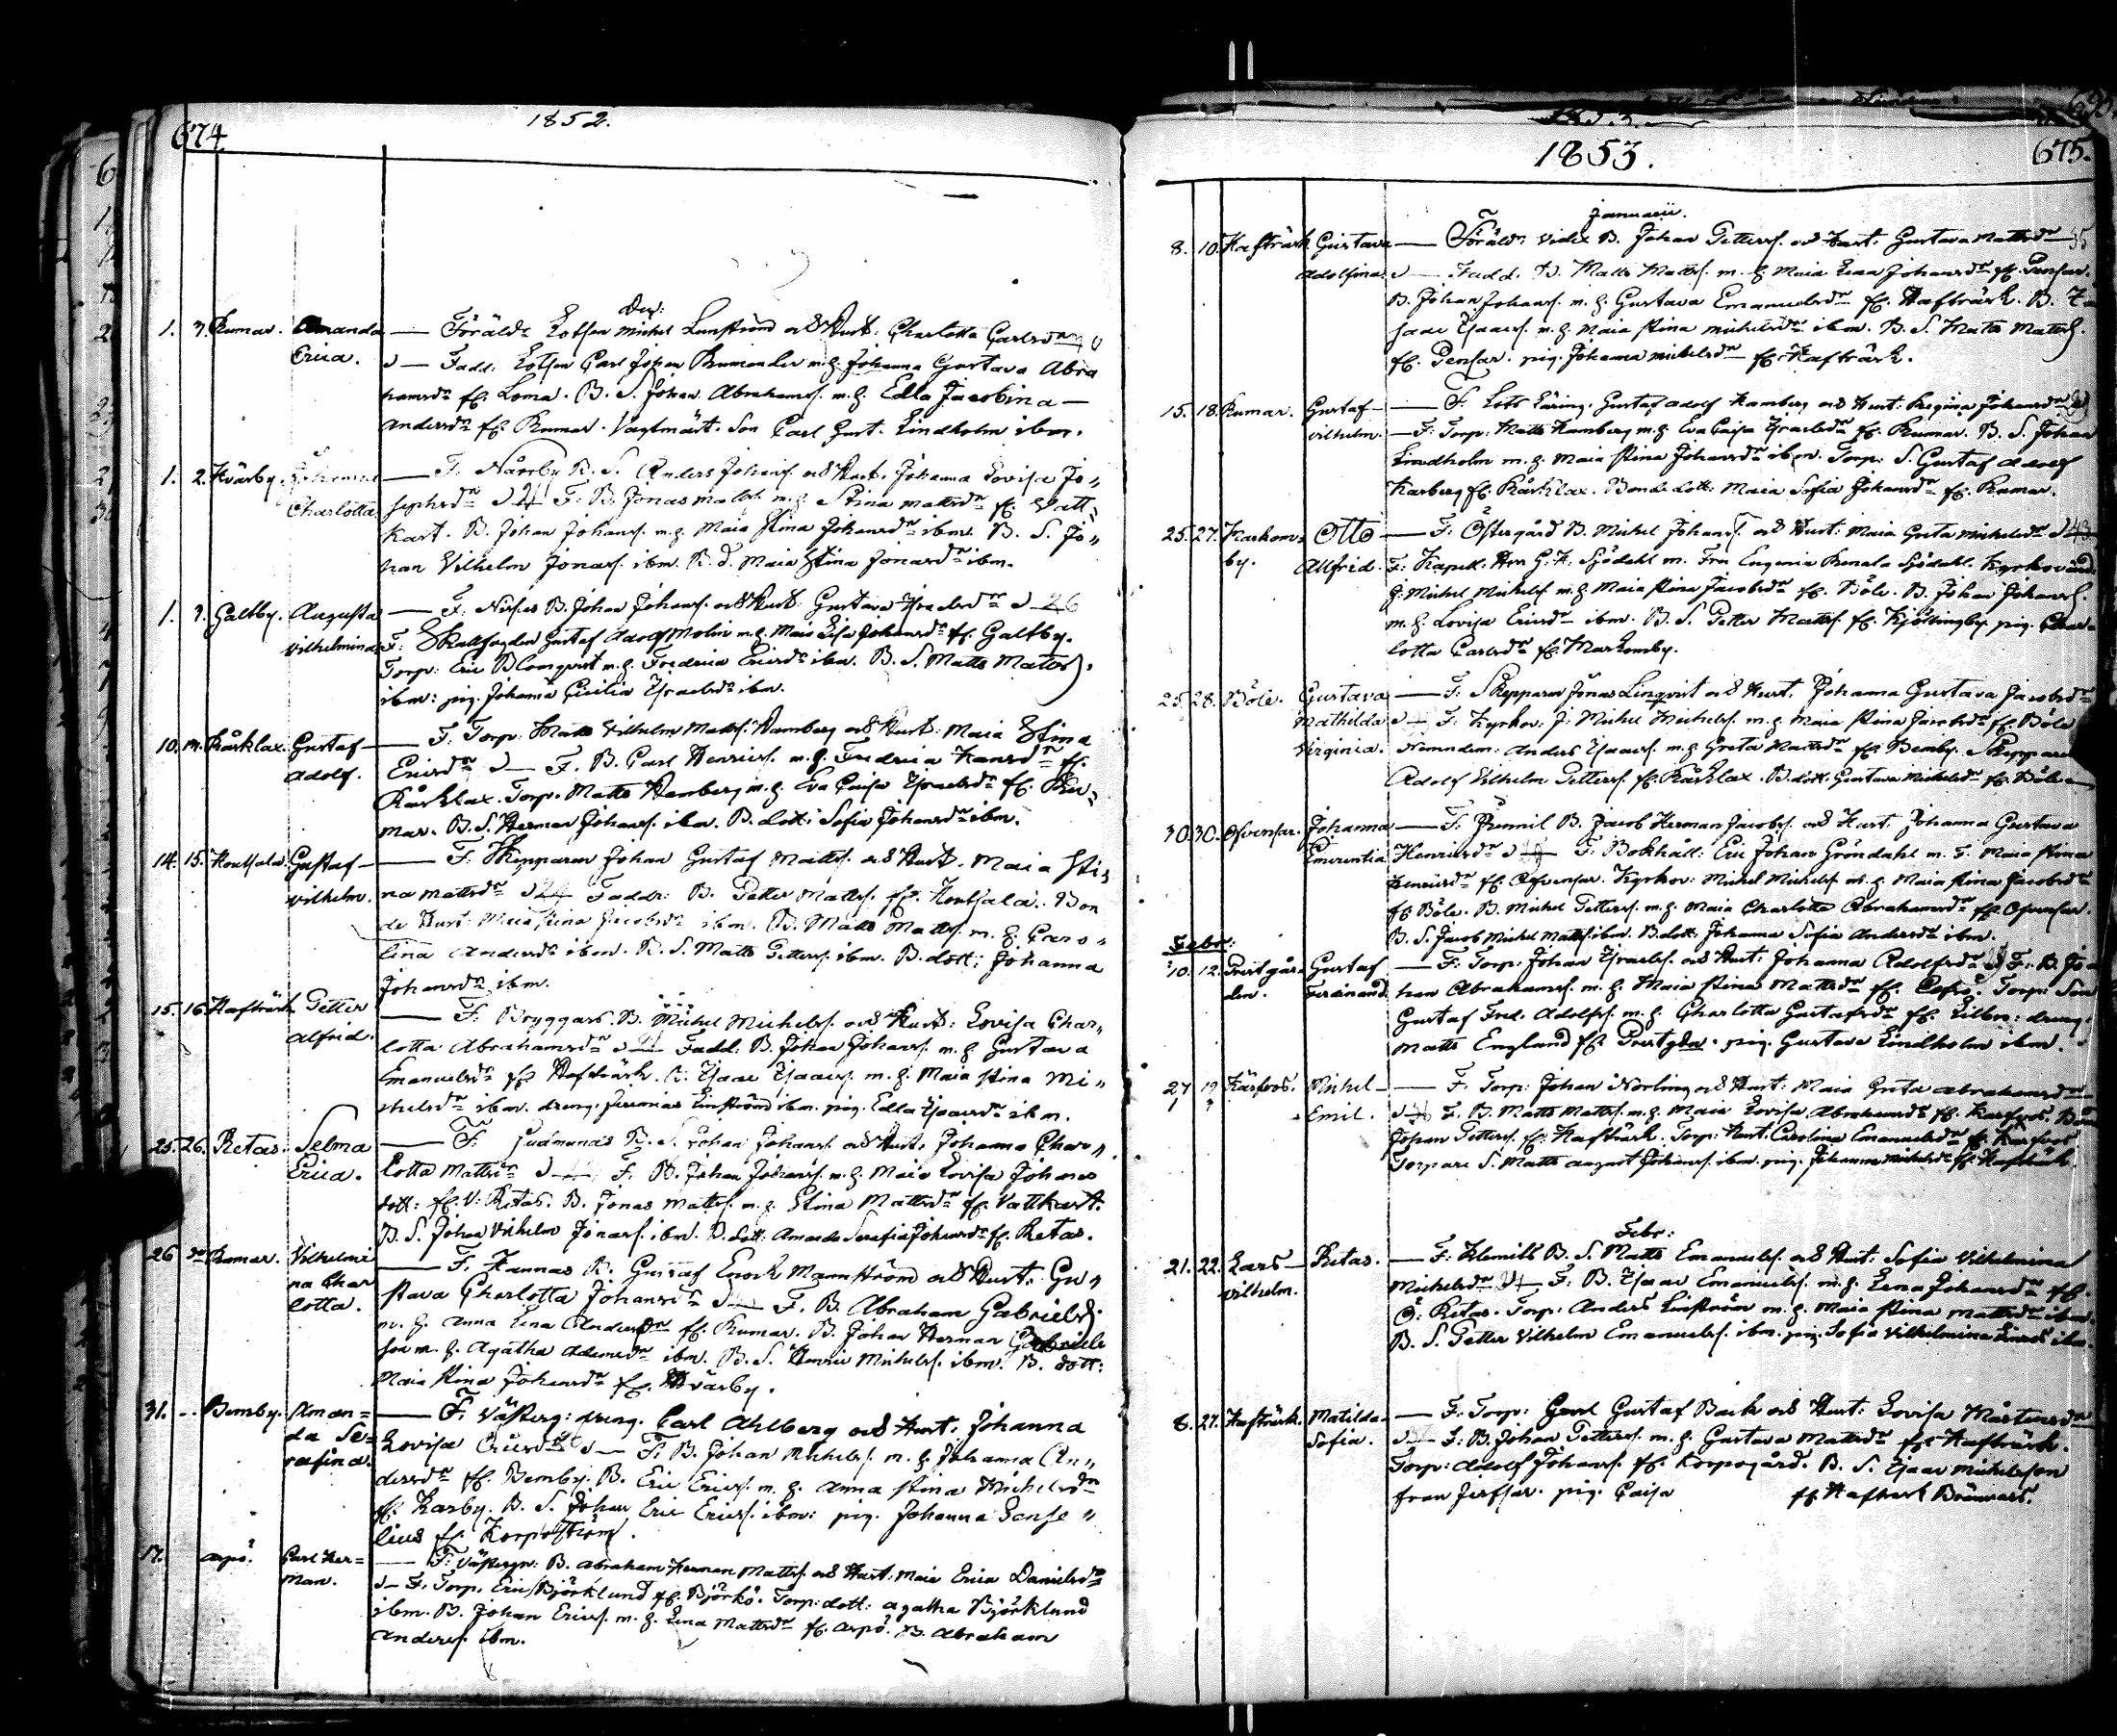 674
1852.
Dec:
1. 3. Rumar. Amanda — Föräldr Lotsen Michel Lunström och Hust: Charlotta Carlsdr
Erica. — Fadd. Lotsen Carl Johan Rumander m. h. Johanna Gustava Abra
hamsdr fr. Loma. B. S. Johan Abrahamss. m. h. Edla Jacobina —
Andersdr fr. Rumar. Vagtmäst. Son Carl Gust. Lindholm ibm.
1. 2. Hvarby. Johanna — F. Norrby B. S. Anders Johanss. och Hust. Johanna Lovisa Jo„
Charlotta. sephsdr F. B. Jonas Matss. m. h. Stina Mattsdr fr. Watt„
kast. B. Johan Johanss. m. h. Maia Stina Johansdr ibm. B. S. Jo„
han Vilhelm Jonass. ibm. B. d. Maia Stina Jonasdr ibm.
1. 3. Galtby. Augusta — F. Nisses B. Johan Johanss. och Hust. Gustava Israelsdr 26
Vilhelmina F: Gustaf Adolf Molin m. h. Maia Lisa Johansdr fr. Galtby.
Torp: Eric Blomqvist m. h. Fredrica Ericsdr ibm. B. S. Matts Matss.
ibm: pig. Johanna Cicilia Israelsdr ibm.
10. 14. Kårklax. Gustaf — F. Torp: Matts Vilhelm Matts. Hamberg och Hust: Maia Stina
Adolf. Ericsdr — F. B. Carl Henricss. m. h. Fredrica Hansdr fr.
Kårklax. Torp. Matts Hamberg m. h. Eva Caisa Israelsdr fr. Ru„
mar. B. S. Herman Johanss. ibm. B. dott: Sofia Johansdr ibm.
14. 15. Houtsala. Gustaf — F. Skepparen Johan Gustaf Mattss. och Hust. Maia Sti„
Vilhelm. na Mattsdr 24 Faddr: B. Petter Mattss. fr. Houtsala. Bon
de Hust: Maia Stina Jacobsdr ibm. B. Matts Mattss. m. h. Caro„
lina Andersdr ibm. B. S. Matts Petterss. ibm. B. dott: Johanna
Johansdr ibm.
15. 16. Hafträsk Petter — F. Bryggars. B. Michel Michelss. och Hust: Lovisa Char„
Alfrid. lotta Abrahamsdr Fadd: B. Johan Johanss. m. h. Gustava
Emanuelsdr fr. Hafträsk. B. Isaac Isaacss. m. h. Maia Stina Mi„
chelsdr ibm. dreng. Jeremias Linström ibm. pig. Edla Isaacsdr ibm.
25. 26. Retas. Selma — F. Judmunds B. S. Johan Johanss. och Hust. Johanna Char„
Erica. lotta Mattsdr F. B. Johan Johanss. m. h. Maia Lovisa Johans
dott: fr. V: Retas. B. Jonas Mattss. m. h. Stina Mattsdr fr. Vattkast.
B. S. Johan Vilhelm Jonass. ibm. B. dott. Amanda Serafia Johansdr fr. Retas.
26 Rumar. Vilhelmi — F. Hannas B. Gustaf Enoch Mannström och Hust: Gu„
na Char stava Charlotta Johansdr F. B. Abraham Gabrielss.
lotta. m. h. Anna Lena Andersdr fr. Rumar. B. Johan Herman Gabriels
son m. h. Agatha Adamsdr ibm. B. S. Henric Michelss. ibm. B. dott:
Maia Stina Johansdr fr. Hvarby.
31. .. Bemby. Aman= — F. Västerg: dreng. Carl Ahlberg och Hust. Johanna
da Se= Lovisa Ericsdr — F. B. Johan Michelss. m. h. Johanna An„
rafina. dersdr fr. Bemby. B. Eric Ericss. m. h. Anna Stina Michelsdr
fr. Karby. B. S. Johan Eric Ericss. ibm: pig. Johanna
lius fr. Korpoström.
17. Arpö. Carl Her= — F. Västergr: B. Abraham Herman Mattss. och Hust: Maia Erica Danielsdr
man. — F. Torp. Eric Björklund fr. Björkö. Torp: dott: Agatha Björklund
ibm. B. Johan Ericss. m. h. Lena Mattsdr fr. Arpö. B. Abraham
Anderss. ibm.
1853.
675.
Januarii.
8. 10. Hafträsk. Gustava — Föräldr B. Johan Petterss. och Hust: Gustava Mattsdr 35
Adolfina. — Fadd. B. Matts Mattss. m. h. Maia Lena Johansdr fr. Pensar.
B. Johan Johanss. m. h. Gustava Emanuelsdr fr. Hafträsk. B. I
saac Isaacss. m. h. Maia Stina Michelsdr ibm. B. S. Matts Mattss.
fr. Pensar. pig. Johanna Michelsdr fr. Hafträsk.
15. 18. Rumar. Gustaf — F. Lots Läring. Gustaf Adolf Hamberg och Hust: Regina Johansdr
Vilhelm. — F: Torp: Matts Hamberg m. h. Eva Caisa Israelsdr fr. Rumar. B. S. Johan
Lindholm m. h. Maia Stina Johansdr ibm. Torp: S. Gustaf Adolf
Karberg fr. Kårklax. Bonde dott: Maia Sofia Johansdr fr. Rumar.
25. 27. Markom= Otto — F: Östergård B. Michel Johanss. och Hust: Maia Greta Michelsdr 43
by. Allfrid. F: Kapell. Herr G. H. Sjödahl m. Fru Eugenia Renata Sjödahl. Kyrkovärd.
J. Michel Michelss. m. h. Maia Stina Jacobsdr fr. Böle. B. Johan Johanss.
m. h. Lovisa Ericsdr ibm. B. S. Petter Mattss. fr. Kjöttingby. pig. Char
lotta Carlsdr fr. Markomby.
25. 28. Böle. Gustava — F: Skepparen Jonas Linqvist och Hust. Johanna Gustava Jacobsdr
Mathilda — F: Kyrkov: J. Michel Michelss. m. h. Maia Stina Jacobsdr fr. Böle
Virginia. Nämndem: Anders Isaacss. m. h. Greta Mattsdr fr. Bemby. Skeppare
Adolf Vilhelm Petterss. fr. Kårklax. B. dott. Gustava Michelsdr fr. Böle —
30. 30. Ofvensar. Johanna — F. B. Jacob Herman Jacobss. och Hust. Johanna Gustava
Emerentia Henricsdr F: Bokhåll: Eric Johan Gröndahl m. F. Maia Stina
Henricsdr fr. Ofvensar. Kyrkov: Michel Michelss. m. h. Maia Stina Jacobsdr
fr. Böle. B. Michel Petterss. m. h. Maia Charlotta Abrahamsdr fr. Ofvensar.
B. S. Jacob Michel Mattss. ibm. B. dott. Johanna Sofia Andersdr ibm.
Febr:
10. 12. Prestgår= Gustaf — F: Torp: Johan Israelss. och Hust: Johanna Adolfsdr F: B. Jo
den. Ferdinand. han Abrahamss. m. h. Maia Stina Mattsdr fr. Torp: Son
Gustaf Fred. Adolfss. m. h. Charlotta Gustafsdr fr. dreng:
Matts England fr. Prestgdn. pig. Gustava Lindholm ibm.
27 19 Kärfvos. Michel — F. Torp: Johan Norling och Hust: Maia Greta Abrahamsdr
Emil. F. B. Matts Mattss. m. h. Maia Lovisa Abrahamsdr fr. Korsfvos. Bond
Johan Petterss. fr. Hafträsk. Torp: Hust. Carolina Emanuelsdr fr. Kärfvos
Torpare S. Matts August Johanss. ibm. pig. Johanna Michelsdr fr. Hafträsk.
Febr:
21. 22. Lars — Retas. — F: Klemills B. S. Matts Emanuelss. och Hust: Sofia Vilhelmina
Vilhelm. Michelsdr F: B. Isaac Emanuelss. m. h. Lena Johansdr fr.
Ö: Retas. Torp: Anders Linström m. h. Maia Stina Mattsdr ibm.
B. S. Petter Vilhelm Emanuelss. ibm. pig. Sofia Vilhelmina ibm.
8. 27. Hafträsk. Matilda — F: Torp: Carl Gustaf Back och Hust: Lovisa Mårtensdr
Sofia. F: B. Johan Petterss. m. h. Gustava Mattsdr fr. Hafträsk.
Torp: Adolf Johanss. fr. Korpogård. B. S. Isaac Michelsson
från Jerfsar. pig. Caisa fr. Hafträsk Brännars.